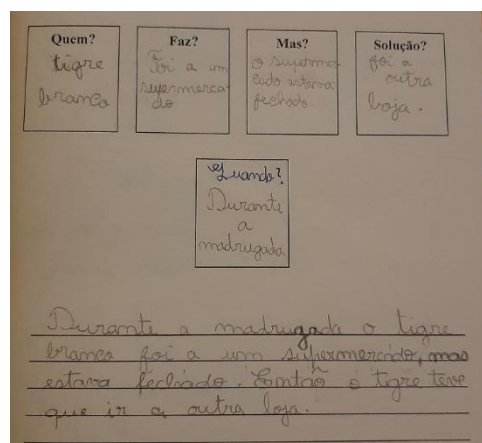 Quem?
tigre
branco
Faz?
Foi a um
supermerca
do
Mas?
O superme
cado estava
fechado.
Solução?
foi a
outra
loja.
Quando?
Durante
a
madrugada
Durante a madrugada o tigre
branco foi a um supermercado, mas
estava fechado. Eomtão o tigre teve
que ir a outra loja.